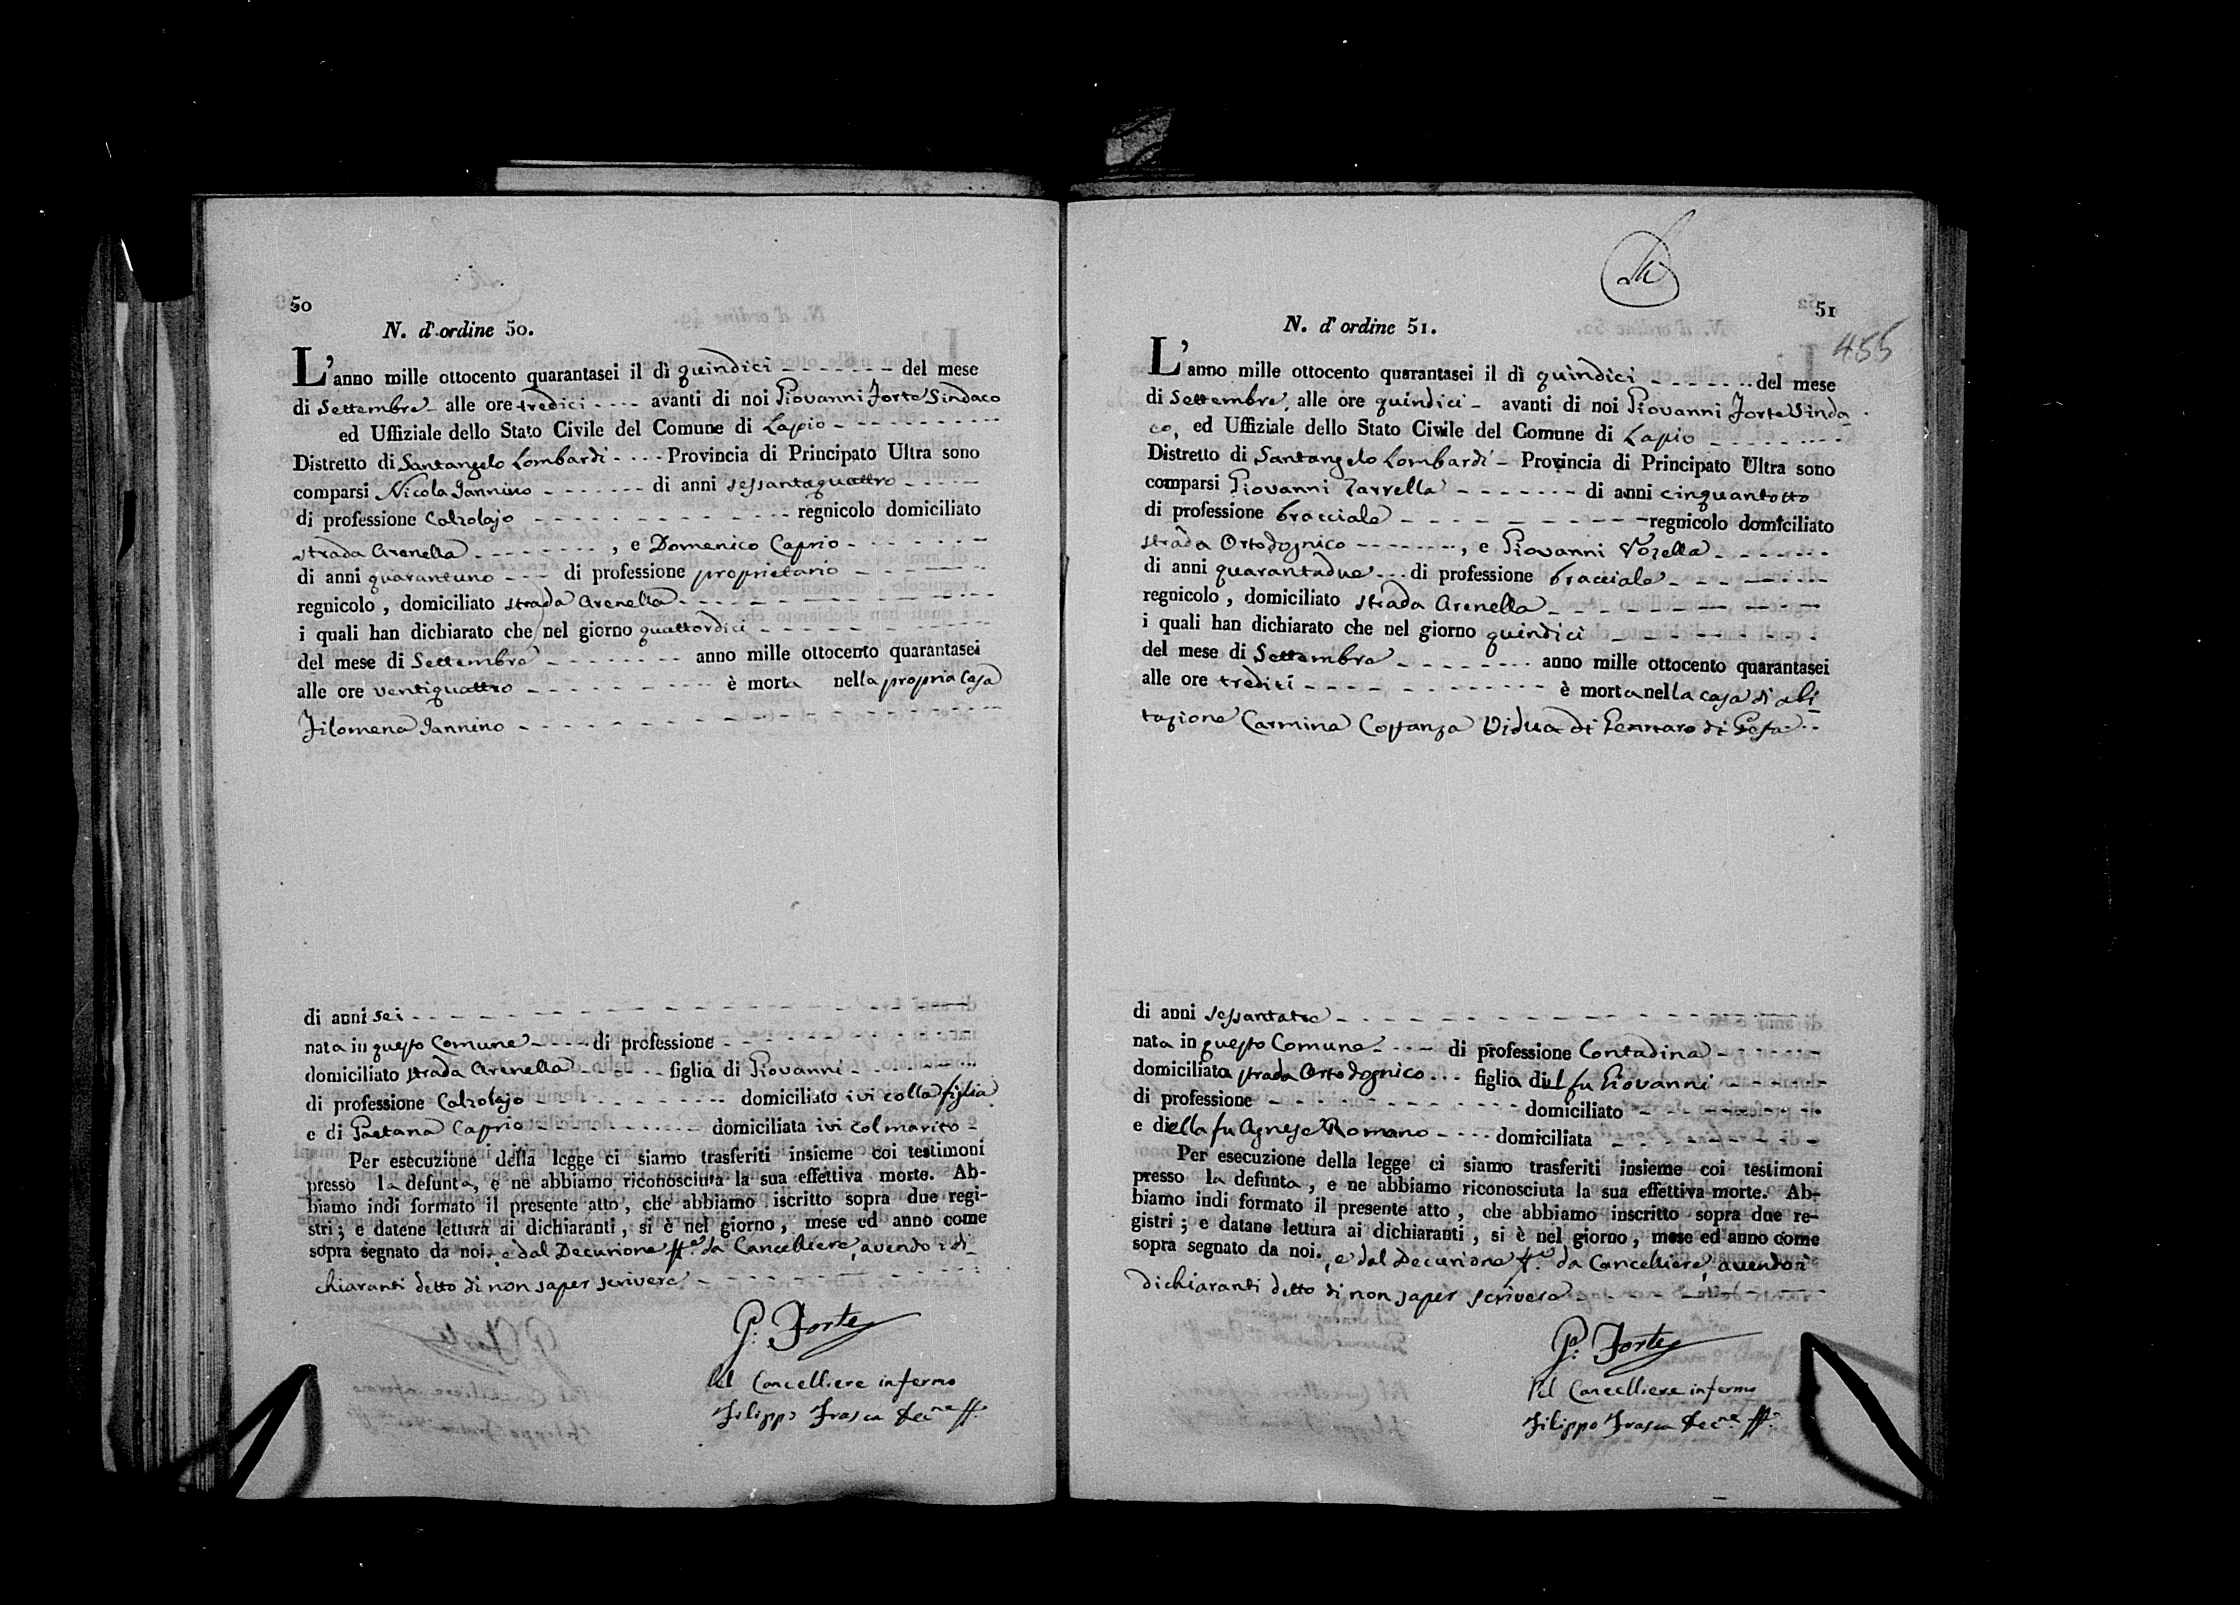 50
N. d'ordine 50.
L'anno mille ottocento quarantasei il dì quindici del mese
di Settembre alle ore tredici avanti di noi Giovanni Forte Sindaco
ed Uffiziale dello Stato Civile del Comune di Lapio
Distretto di Santangelo Lombardi Provincia di Principato Ultra sono
comparsi Nicola Iannino di anni sessantaquattro
di professione Calzolajo regnicolo domiciliato
strada Arenella , e Domenico Caprio
di anni quarantuno di professione proprietario
regnicolo , domiciliato strada Arenella
i quali han dichiarato che nel giorno quattordici
del mese di Settembre anno mille ottocento quarantasei
alle ore ventiquattro è morta nella propria Casa
Filomena Iannino
di anni sei
nata in questo Comune di professione
domiciliato strada Arenella figlia di Giovanni
di professione Calzolajo domiciliato ivi colla figlia
e di Gaetana Caprio domiciliata ivi col marito
Per esecuzione della legge ci siamo trasferiti insieme coi testimoni
presso la defunta, e ne abbiamo riconosciuta la sua effettiva morte. Ab-
biamo indi formato il presente atto, che abbiamo iscritto sopra due regi-
stri ; e datene lettura ai dichiaranti, si è nel giorno, mese ed anno come
sopra segnato da noi, e dal Decurione ff. da Cancelliere, avendo i di
chiaranti detto di non saper scrivere
G. Forte
Pel Cancelliere infermo
Filippo Frasca ff.
51
455
N. d'ordine 51.
L'anno mille ottocento quarantasei il dì quindici del mese
di Settembre, alle ore quindici avanti di noi Giovanni Forte Sinda
co, ed Uffiziale dello Stato Civile del Comune di Lapio
Distretto di Santangelo Lombardi Provincia di Principato Ultra sono
comparsi Giovanni Zarrella di anni cinquantotto
di professione bracciale regnicolo domiciliato
strada Ortodognico , e Giovanni Vozella
di anni quarantadue di professione bracciale
regnicolo , domiciliato strada Arenella
i quali han dichiarato che nel giorno quindici
del mese di Settembre anno mille ottocento quarantasei
alle ore tredici è morta nella casa di abi
tazione Carmina Costanza Vidua di Gennaro di
di anni sessantatre
nata in questo Comune di professione Contadina
domiciliata strada Ortodognico figlia del fu Giovanni
di professione domiciliato
e della fu Agnese Romano domiciliata
Per esecuzione della legge ci siamo trasferiti insieme coi testimoni
presso la defunta, e ne abbiamo riconosciuta la sua effettiva morte. Ab-
biamo indi formato il presente atto, che abbiamo inscritto sopra due re-
gistri ; e datane lettura ai dichiaranti, si è nel giorno, mese ed anno come
sopra segnato da noi, e dal Decurione ff. da Cancelliere, avendo i
dichiaranti detto di non saper scrivere
G. Forte
Pel Cancelliere infermo
Filippo Frasca ff.